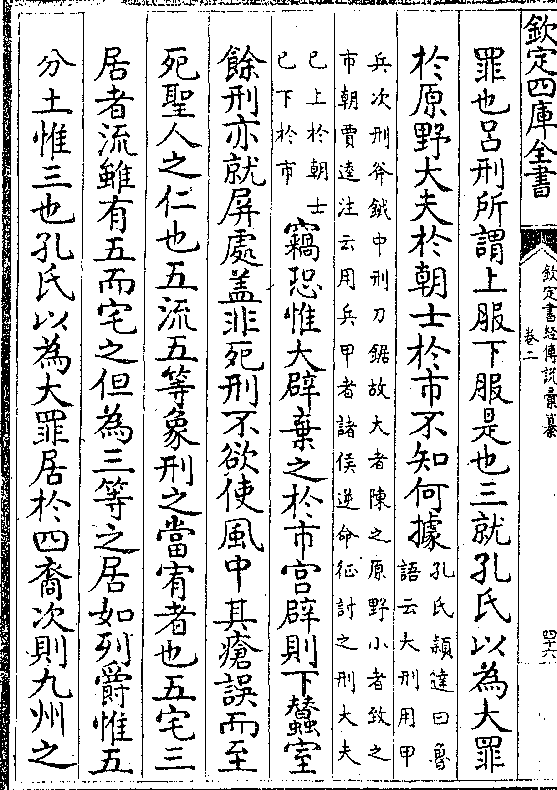 欽定四庫全書
欽定書經傳說彙纂
卷二
四十六
罪也呂刑所謂上服下服是也三就孔氏以為大罪
於原野大夫於朝士於市不知何據
孔氏穎達曰魯
語云大刑用甲
兵次刑斧鉞中刑刀鋸故大者陳之原野小者致之
市朝賈逵注云用兵甲者諸侯逆命征討之刑大夫
已上於朝士
已下於市
竊恐惟大辟棄之於市宫辟則下蠶室
餘刑亦就屏處盖非死刑不欲使風中其瘡誤而至
死聖人之仁也五流五等象刑之當宥者也五宅三
居者流雖有五而宅之但為三等之居如列爵惟五
分土惟三也孔氏以為大罪居於四裔次則九州之